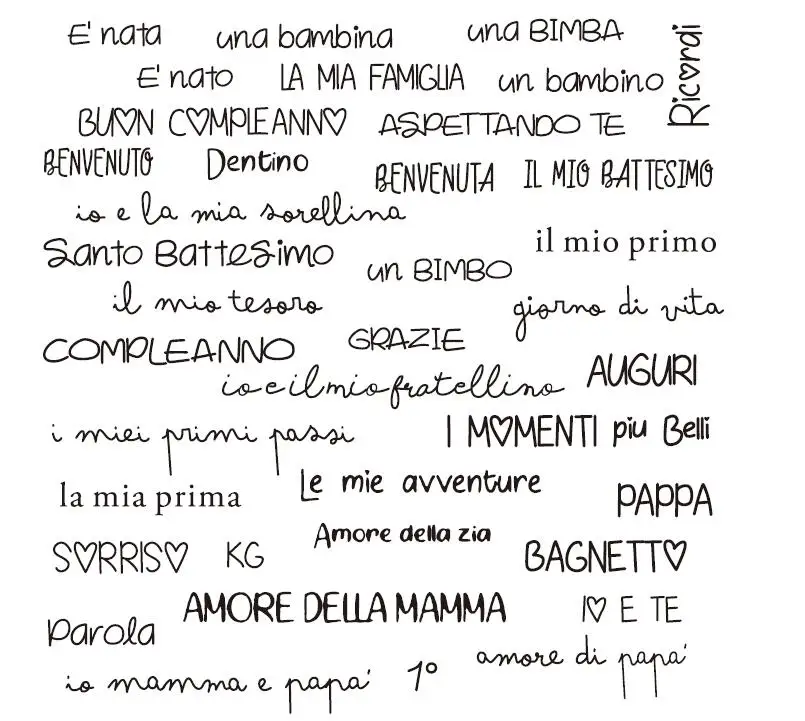 E' nata
una bambina
una BIMBA
Ricordi
E' nato
LA MIA FAMIGLIA
un bambino
BUON COMPLEANNO
ASPETTANDO TE
BENVENUTO
Dentino
BENVENUTA
IL MIO BATTESIMO
io e la mia sorellina
Santo Battesimo
un BIMBO
il mio primo
il mio tesoro
giorno di vita
COMPLEANNO
GRAZIE
io e il mio fratellino
AUGURI
i miei primi passi
I MOMENTI piu Belli
la mia prima
Le mie avventure
PAPPA
SORRISO
KG
Amore della zia
BAGNETTO
Parola
AMORE DELLA MAMMA
IO E TE
io mamma e papa'
1°
amore di papa'